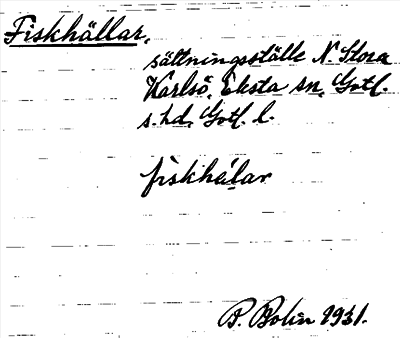 Fiskhällar,
sättningsställe N. Stora
Karlsö, Eksta sn, Gotl.
s. hd, Gotl. l.
fiskhälar
P. Bolin 1931.